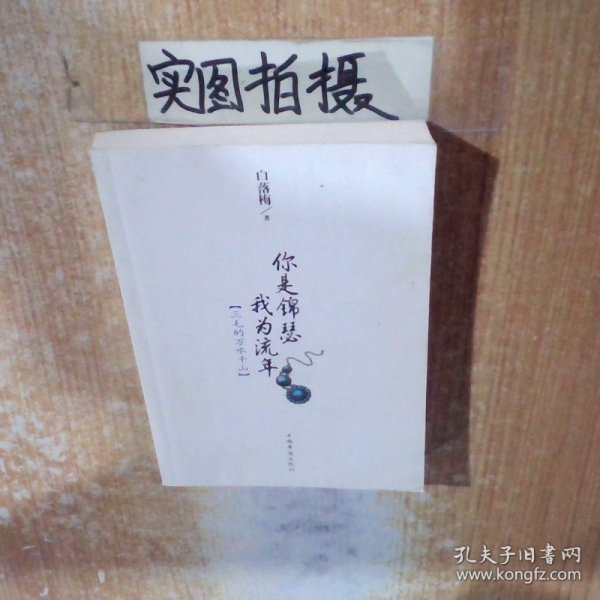 实图拍摄
白落梅/著
你是锦瑟
我为流年
【三毛的万水千山】
中国华侨出版社
孔夫子旧书网
www.kongfz.com